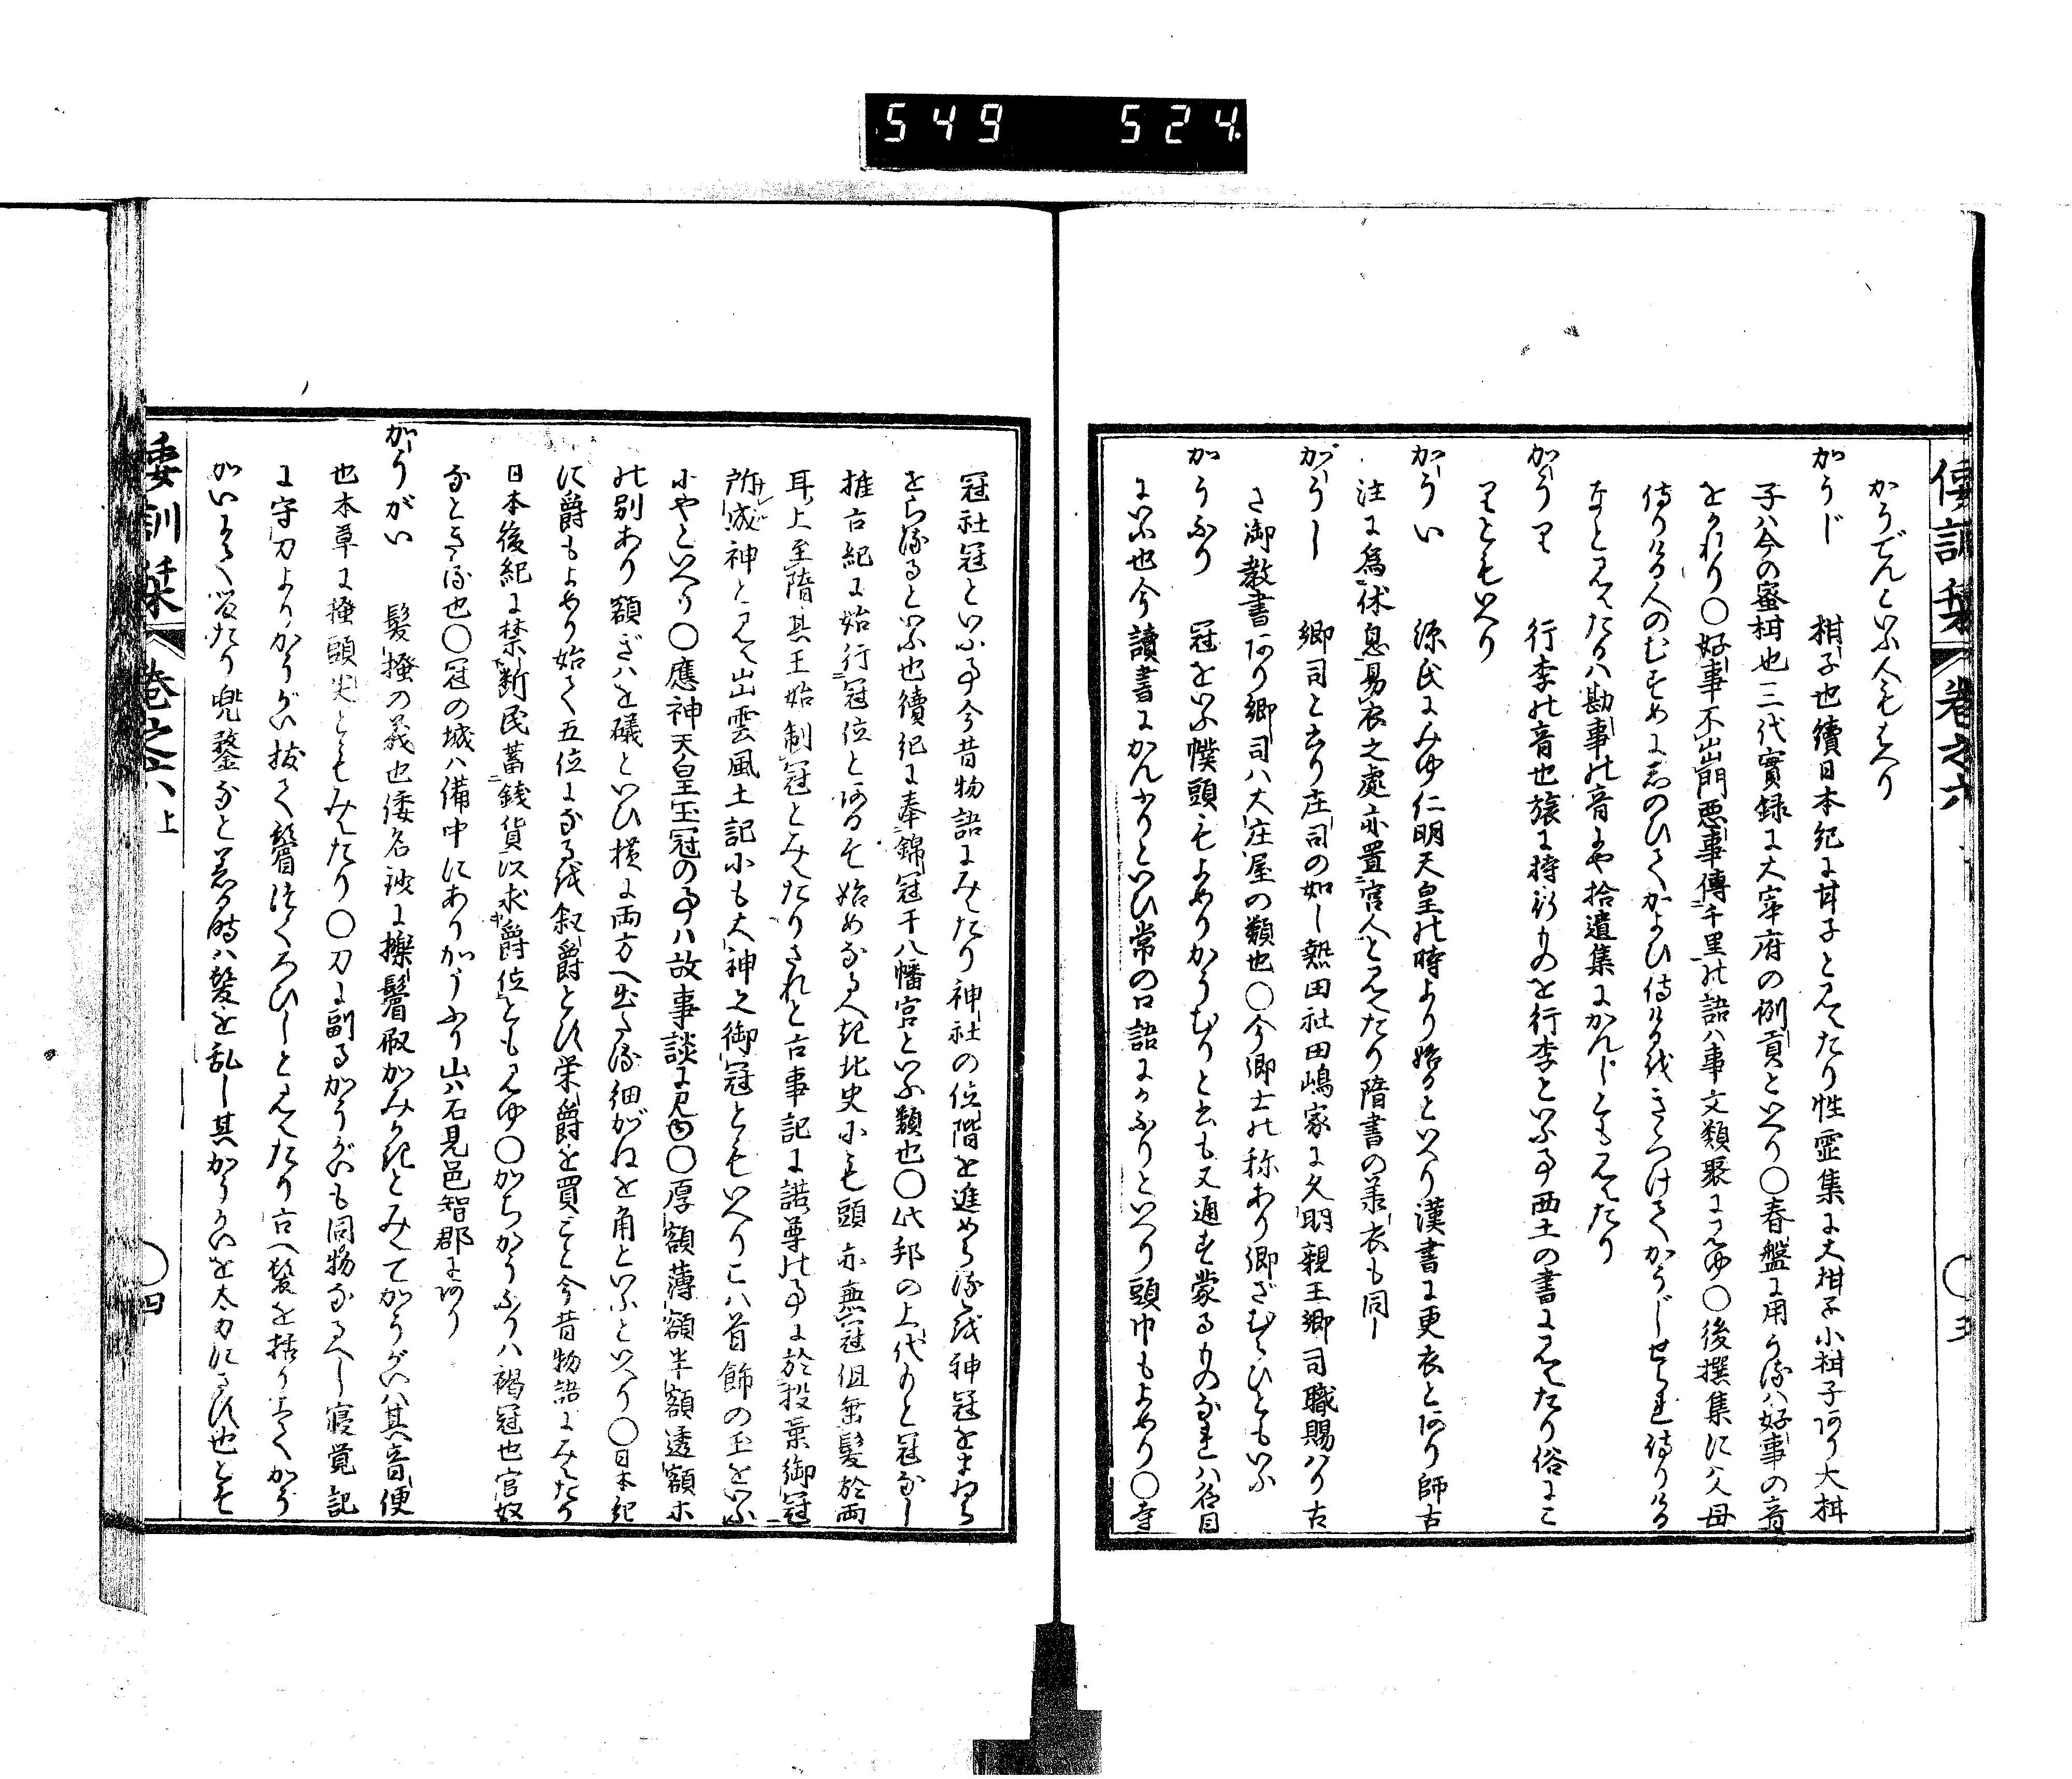 549 524
倭訓栞 卷之六 上
かうでんといふ人もはへり
かうじ 柑子也續日本紀に甘子と見えたり性霊集に大柑子小柑子あり大柑
子ハ今の蜜柑也三代實録に大宰府の例貢といへり〇春盤に用うるハ好事の音
をかれり〇好事不出門悪事傳千里の語ハ事文類聚に見ゆ〇後撰集に父母
侍りける人のむすめにしのひてかよひ侍りけるをきゝつけてかうじせられ侍りける
なと見えたるハ勘事の音にや拾遺集にかんじとも見えたり
かうり 行李の音也旅に持行ものを行李といふ事西土の書に見えたり俗にこ
りともいへり
かうい 源氏にみゆ仁明天皇の時より始るといへり漢書に更衣とあり師古
注に為休息易衣之處亦置官人と見えたり隋書の羕衣も同し
がうし 郷司と書り庄司の如し熱田社田嶋家に久明親王郷司職賜ハり古
き御教書あり郷司ハ大庄屋の類也〇今郷士の称あり郷ざむらひともいふ
かうふり 冠をいふ幞頭もよめりかうむりと書も又通す蒙るものなれハ名目
にいふ也今讀書にかんふりといひ常の口語にかふりといへり頭巾もよめり〇寺
冠社冠といふ事今昔物語にみえたり神社の位階を進めらるゝを神冠をまゐら
せらるゝといふ也續紀に奉錦冠于八幡宮といふ類也〇此邦の上代もと冠なし
推古紀に始行冠位とあるそ始めなるへき北史にも頭亦無冠但垂髪於兩
耳上至隋其王始制冠とみえたりされと古事記に諾尊の事に於投棄御冠
所成神と見え出雲風土記にも大神之御冠ともいへりこハ首飾の玉をいふ
にやといへり〇應神天皇玉冠の事ハ故事談に見ゆ〇厚額薄額半額透額ホ
の別あり額ぎハを礒といひ横に両方へ出たる細がねを角といふといへり〇日本紀
に爵もよめり始て五位になるを叙爵とす栄爵を買こと今昔物語にみえたり
日本後紀に禁断民蓄銭貨以求爵位とも見ゆ〇かちかうふりハ褐冠也官奴
なときる也〇冠の城ハ備中にありかうふり山ハ石見邑智郡にあり
かうがい 髪掻の義也倭名鈔に擽鬢取かみかきとみえてかうがいハ其音便
也本草に掩頭尖ともみえたり〇刀に副るかうがいも同物なるへし寝覚記
に守刀よりかうがい抜て鬢つくろひしと見えたり古へ髪を括りあくてかう
がいそへて留たり兜鍪なと着る時ハ髪を乱し其かうがいを太刀にさす也とそ
倭訓栞 卷之六 上 〇四